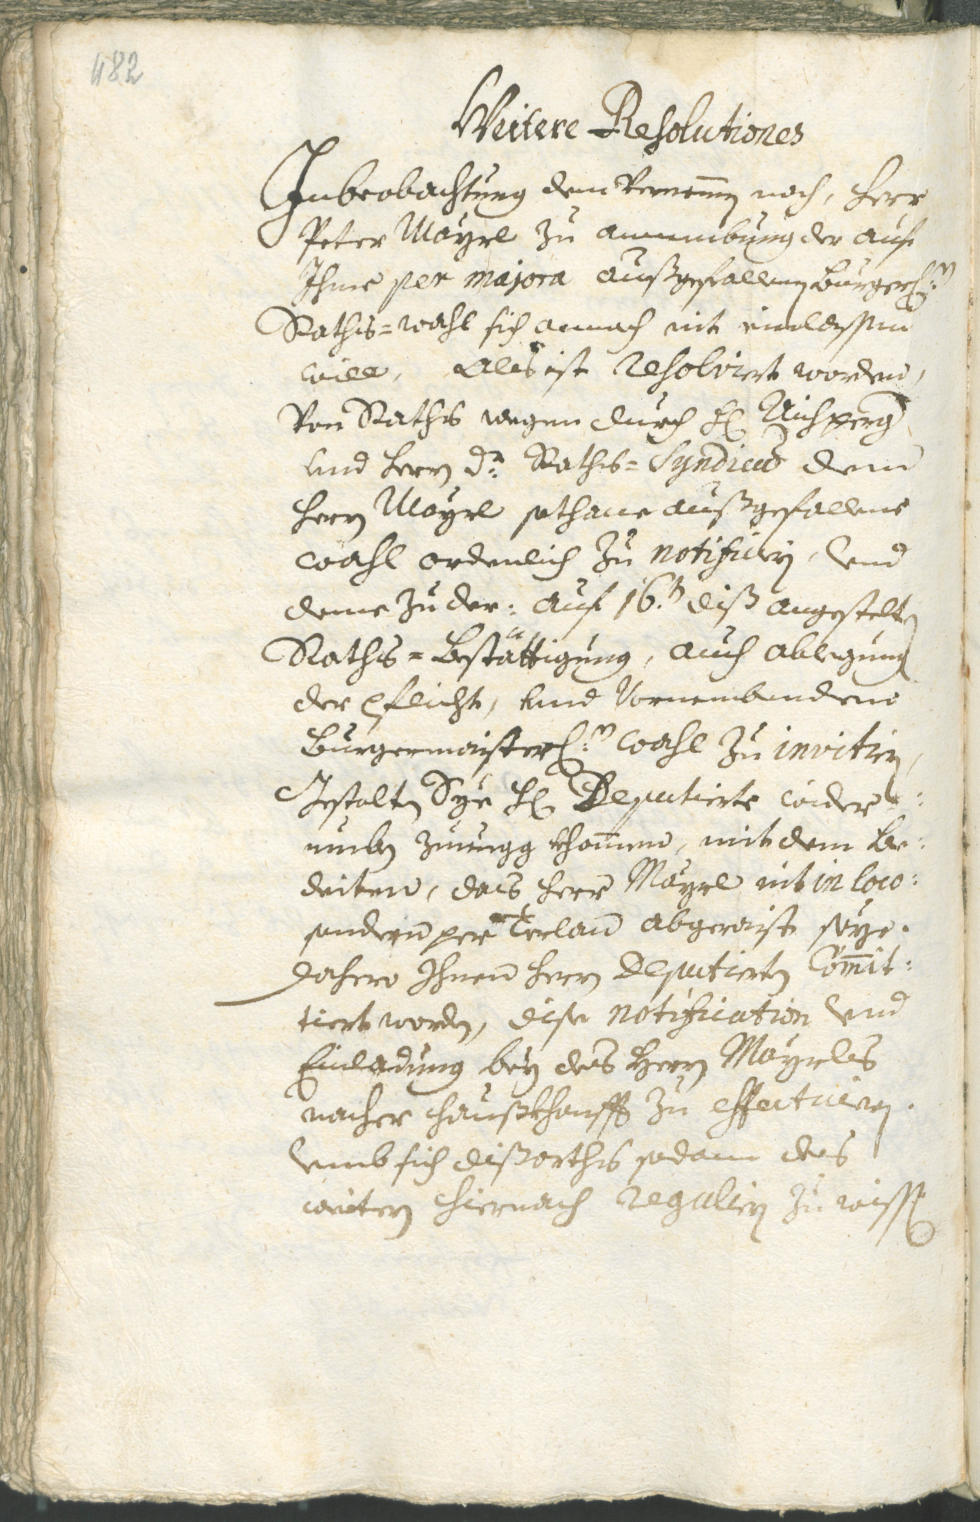 482
Weitere Resolutiones
In beobachtung dem vernemen nach, Herr
Peter Mayrl zu annembung der auf
Ihme per majora außgefallenen burgerl:n
Raths=wahl sich annoch nit einlassen
will, Als ist resolviert worden,
von Raths wegen durch H:
und Herrn Dr: Raths=Syndicus dem
Herrn Mayrl sothane außgefallene
wahl ordenlich zu notificiern, und
deme zu der: auf 16.t diß angestelten
Raths=bestättigung, auch ablegung
der Pflicht, und vornembendene
burgermaisterl:n wahl zu invitiern,
Gestalten Sye H: Deputierte wider=
umben zurugg khommen, mit dem be=
deiten, das Herr Mayrl nit in loco:
sondern per Terlan abgeraist seye.
Dahero Ihnen Herrn Deputierten Com̄it=
tiert worden, dise notification und
Einladung bey des Herrn Mayrls
zu effectuiern.
umb sich dißorths sodann des
weitern hiernach reguliern zu wissen